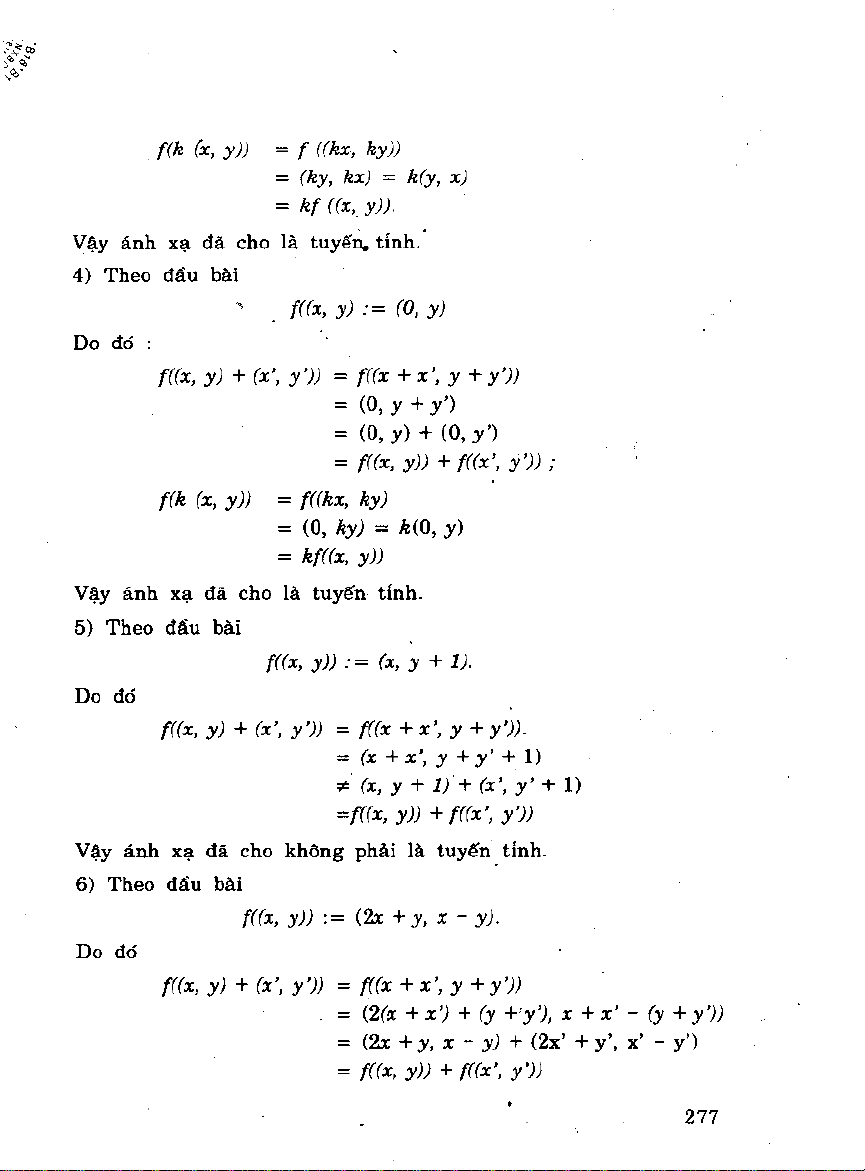 f(k (x, y)) = f ((kx, ky))
= (ky, kx) = k(y, x)
= kf ((x, y)).
Vậy ánh xạ đã cho là tuyến tính.
4) Theo đầu bài
f((x, y) := (0, y)
Do đó :
f((x, y) + (x', y')) = f((x + x', y + y'))
= (0, y + y')
= (0, y) + (0, y')
= f((x, y)) + f((x', y')) ;
f(k (x, y)) = f((kx, ky)
= (0, ky) = k(0, y)
= kf((x, y))
Vậy ánh xạ đã cho là tuyến tính.
5) Theo đầu bài
f((x, y)) := (x, y + 1).
Do đó
f((x, y) + (x', y')) = f((x + x', y + y')).
= (x + x', y + y' + 1)
≠ (x, y + 1) + (x', y' + 1)
=f((x, y)) + f((x', y'))
Vậy ánh xạ đã cho không phải là tuyến tính.
6) Theo đầu bài
f((x, y)) := (2x + y, x - y).
Do đó
f((x, y) + (x', y')) = f((x + x', y + y'))
= (2(x + x') + (y + y'), x + x' - (y + y'))
= (2x + y, x - y) + (2x' + y', x' - y')
= f((x, y)) + f((x', y'))
277